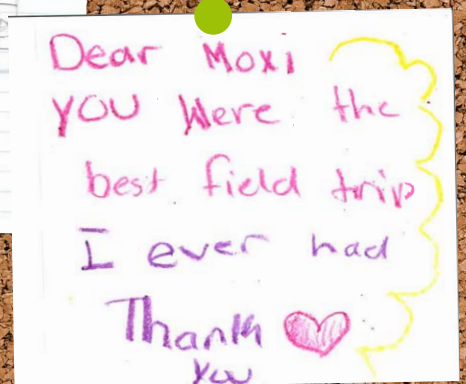 Dear Moxi
YOU Were the
best field trip
I ever had
Thank
You